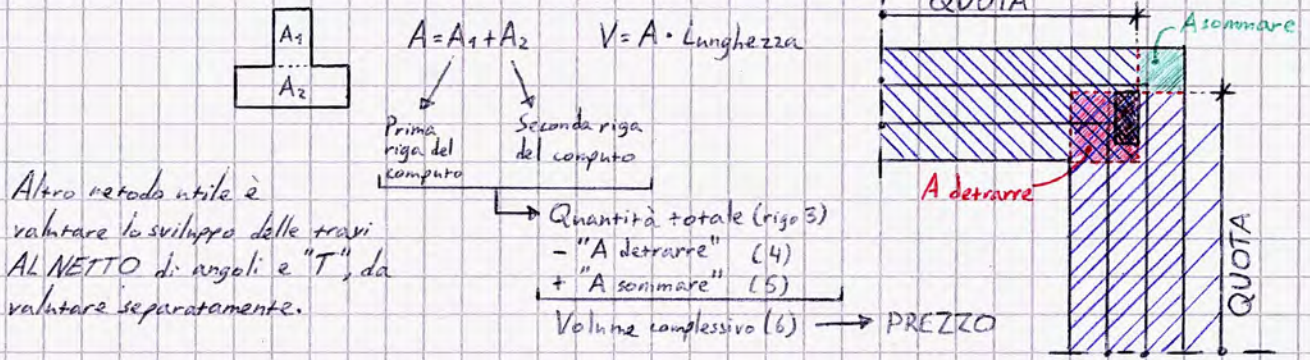 A₁
A₂
A = A₁ + A₂
V = A · Lunghezza
Prima
riga del
computo
Seconda riga
del computo
Altro metodo utile è
valutare lo sviluppo delle travi
AL NETTO di angoli e "T", da
valutare separatamente.
Quantità totale (rigo 3)
- "A detrarre" (4)
+ "A sommare" (5)
Volume complessivo (6) → PREZZO
QUOTA
A sommare
A detrarre
QUOTA